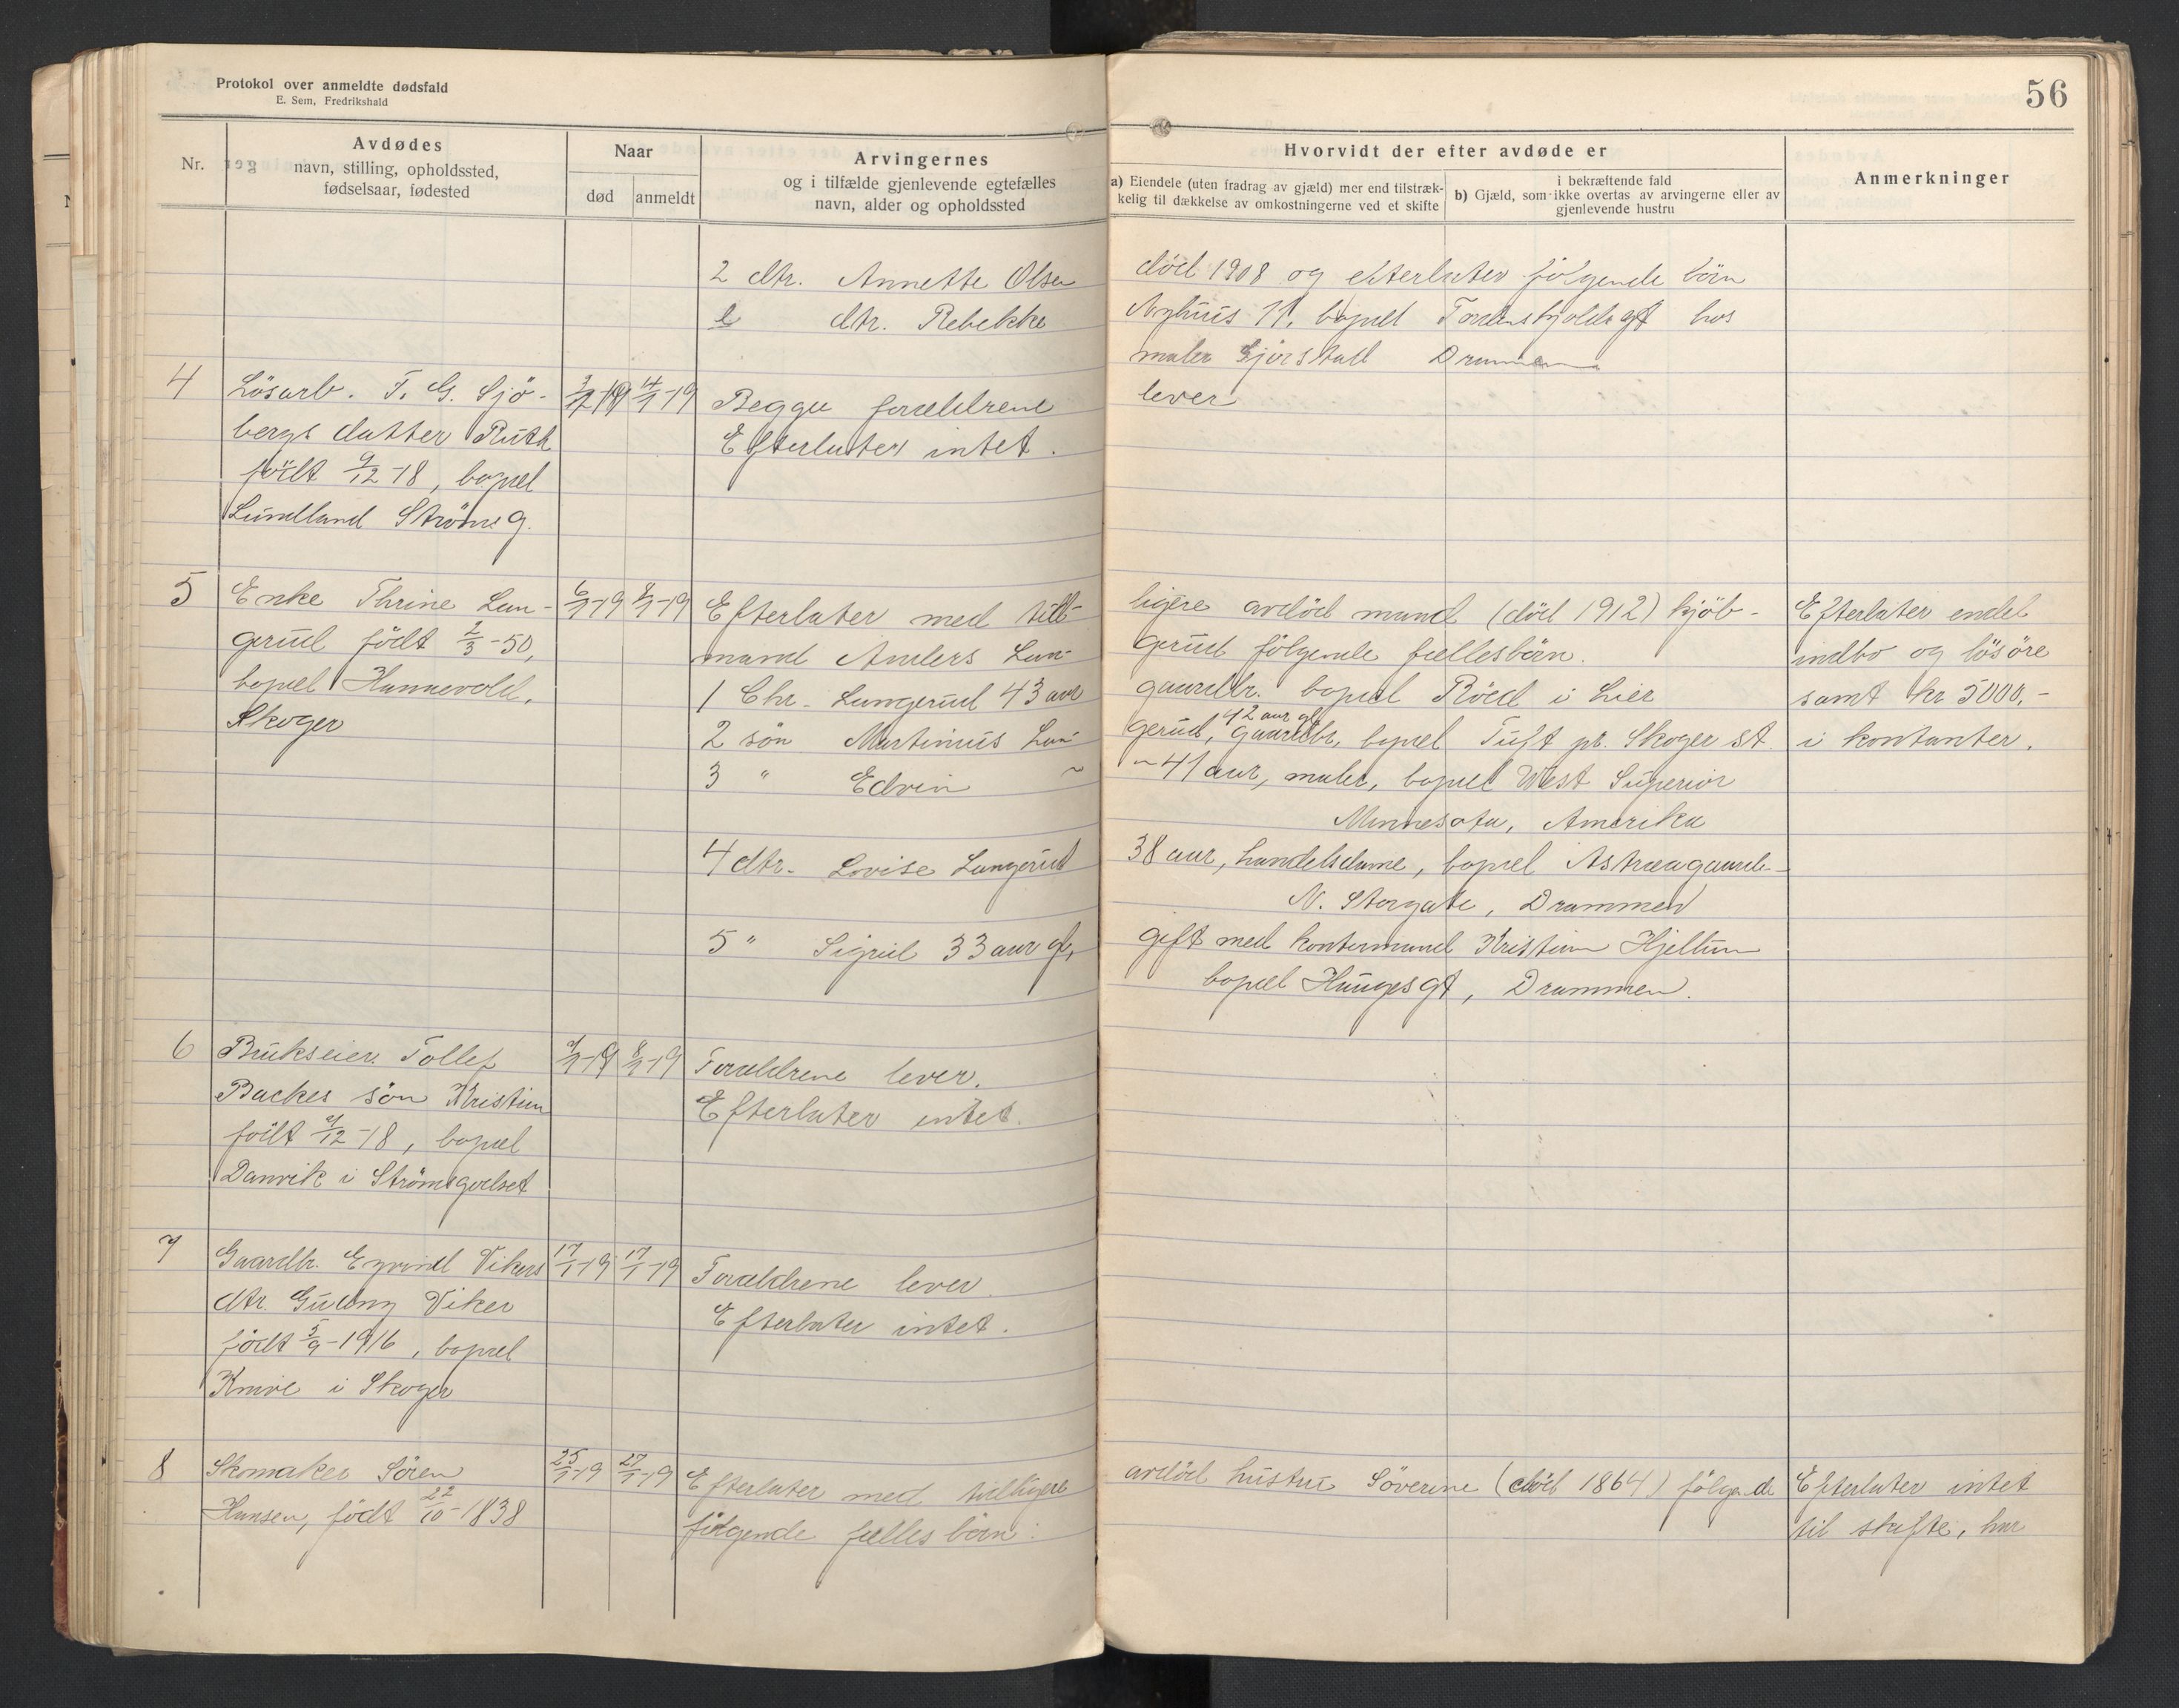 Protokol over anmeldte dødsfald
E. Sem, Fredrikshald
56
Nr.
Avdødes
navn, stilling, opholdssted,
fødselsaar, fødested
Naar
død
anmeldt
Arvingernes
og i tilfælde gjenlevende egtefælles
navn, alder og opholdssted
Hvorvidt der efter avdøde er
a) Eiendele (uten fradrag av gjæld) mer end tilstræk-
kelig til dækkelse av omkostningerne ved et skifte
i bekræftende fald
b) Gjæld, som ikke overtas av arvingerne eller av
gjenlevende hustru
Anmerkninger
2 dtr. Annette Olsen død 1908 og efterlater følgende børn
dtr. Rebekka Nyhuus 11, bopæl Tordenskjoldsgt hos
maler Drammen
4 Løsarb. T. G. Sjø-
bergs datter Ruth
født 9/12-18, bopæl
Lundland Strømsg.
3/1-19 4/1-19
Begge forældrene lever
Efterlater intet.
5 Enke Thrine Lan-
gerud født 2/3-50,
bopæl Hannevold,
Skoger
6/1-19 8/1-19
Efterlater med tidligere avdød mand (død 1912) kjøb-
mand Anders Langerud følgende fællesbørn.
1 Chr. Langerud 43 aar gaardbr. bopæl Röed i Lier
2 søn Martinius Langerud, 42 aar gl gaardbr, bopæl Tuft pr. Skoger st.
3 " Edvin ~ ~ 41 aar, maler, bopæl West Superior
Minnesota, Amerika
4 dtr. Lovise Langerud 38 aar, handelsdame, bopæl Astræagaarde-
N. Storgate, Drammen
5 " Sigrid 33 aar gl, gift med kontormand Kristian Hjellum
bopæl Haugesgt, Drammen.
Efterlater endel
indbo og løsøre
samt kr 5000,-
i kontanter.
6 Brukseier Tollef
Backes søn Kristian
født 7/12-18, bopæl
Danvik i Strømsgodset
7/1-19 8/1-19
Forældrene lever.
Efterlater intet.
7 Gaardbr. Eyvind Vikers
dtr. Gudny Viker
født 5/9-1916, bopæl
Knive i Skoger
17/1-19 17/1-19
Forældrene lever.
Efterlater intet.
8 Skomaker Søren
Hansen, født 22/10-1838
25/1-19 27/1-19
Efterlater med tidligere avdød hustru Søverine (død 1864) følgende
følgende fælles børn:
Efterlater intet
til skifte, har